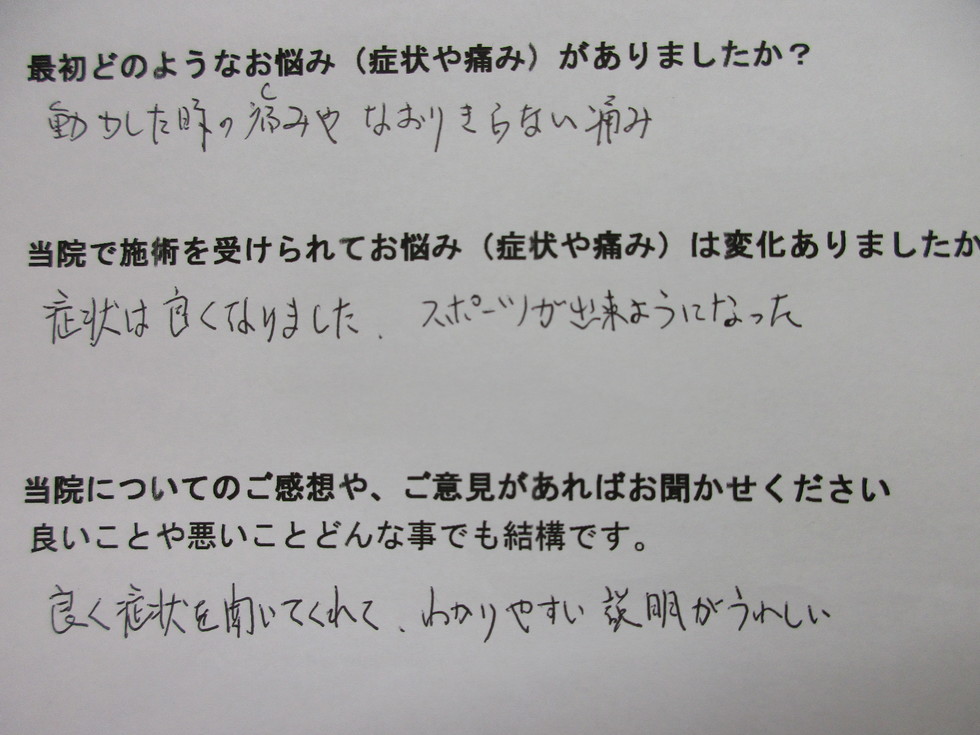 最初どのようなお悩み（症状や痛み）がありましたか？
動かした時の痛みや なおりきらない痛み
当院で施術を受けられてお悩み（症状や痛み）は変化ありましたか
症状は良くなりました. スポーツが出来ようになった
当院についてのご感想や、ご意見があればお聞かせください
良いことや悪いことどんな事でも結構です。
良く症状を聞いてくれて、わかりやすい説明がうれしい